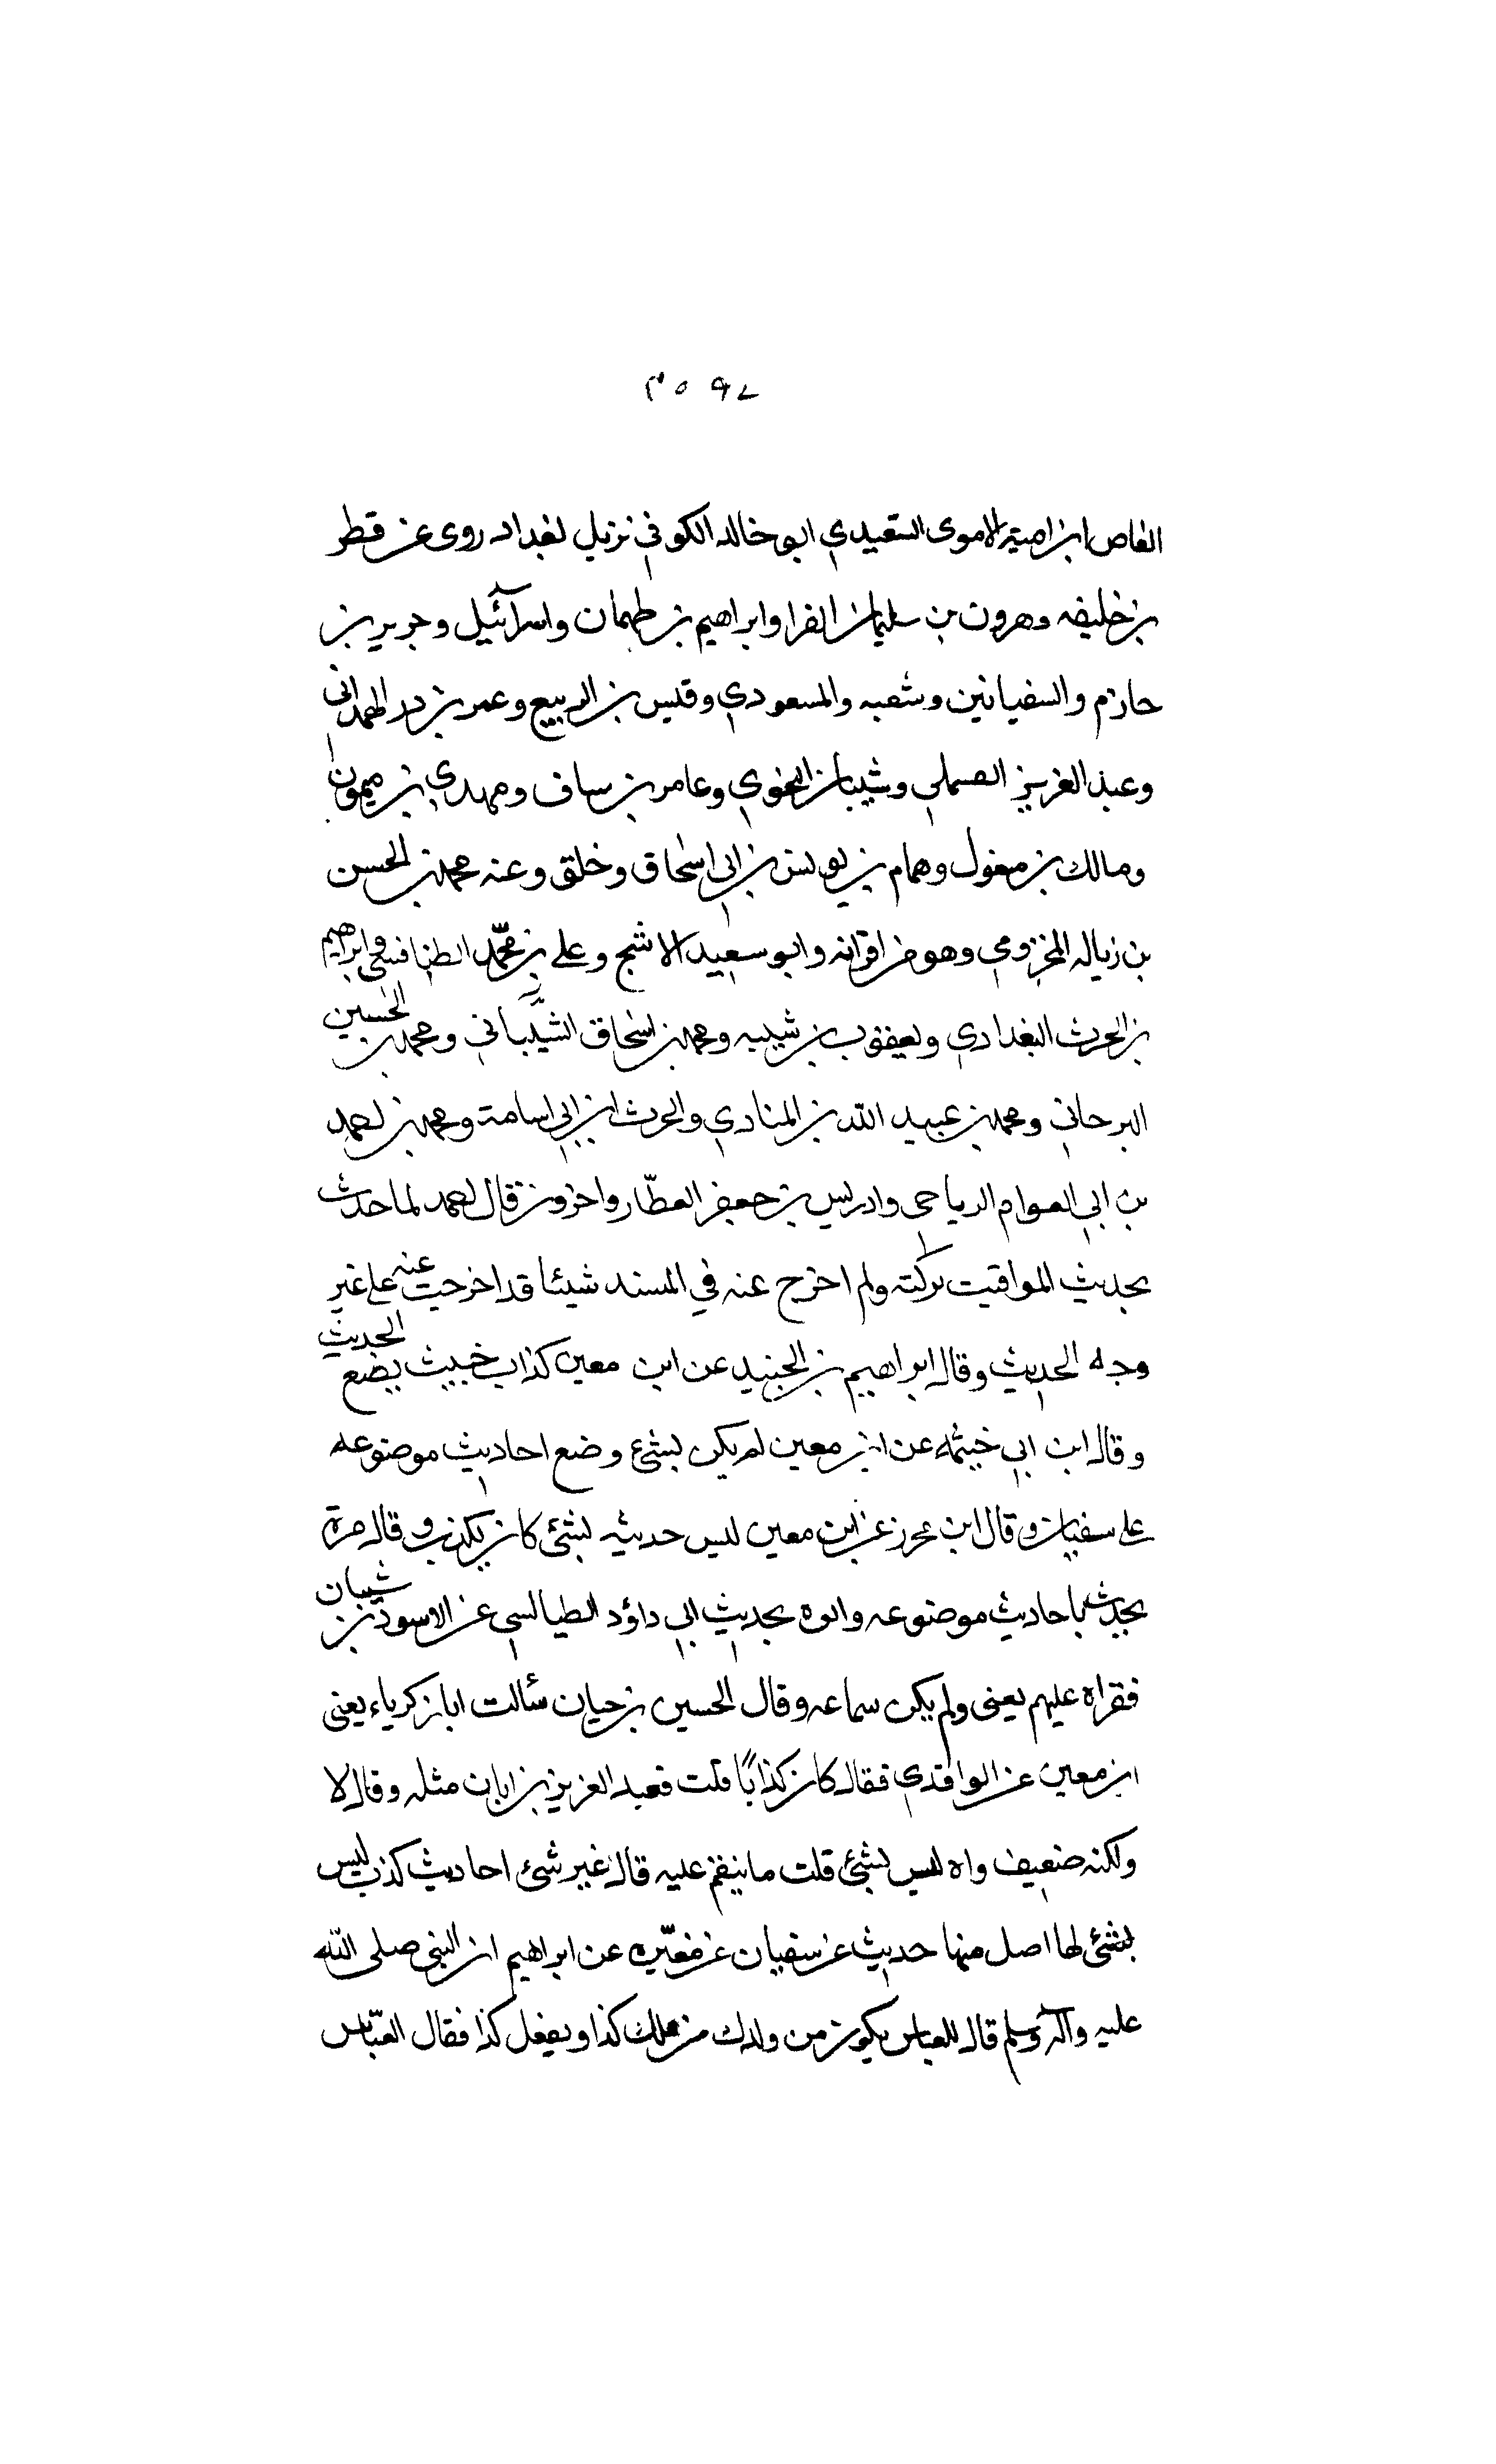 العاص ابن امية الاموى السعيدي ابو خالد الكوفي نزيل بغداد روى عن قطر
بن خليفه وهرون بن سليمان الفرا وابراهيم بن طهمان واسرآئيل وجرير بن
حازم والسفيانين وشعبه والمسعودي وقيس بن الربيع وعمر بن در الهمدانى
وعبد العزيز الصملي وشيبان النحوي وعامر بن ساف ومهدي بن ميمون
ومالك بن مغول وهمام بن يونس بن ابي اسحاق وخلق وعنه محمد بن الحسن
بن زباله المخزومي وهو من اقرانه وابو سعيد الاشج وعلي بن محمّد الطنافسي وابراهيم
بن الحرث البغدادي ويعقوب بن شيبه ومحمد بن اسحاق الشيباني ومحمد بن الحسين
البرجاني ومحمد بن عبيد الله بن المنادي والحرث ابن ابي اسامة ومحمد بن احمد
بن ابي العوام الرياحي وادريس بن جعفر العطّار واخرون قال احمد لما حدث
بحديث المواقيت تركته ولم اخرج عنه في المسند شيئا قد اخرجت عنه على غير
وجه الحديث وقال ابراهيم بن الجنيد عن ابن معين كذاب خبيث يضع الحديث
وقال ابن ابي خيثمه عن ابن معين لم يكن بشئ وضع احاديث موضوعه
على سفيان وقال ابن محرز عن ابن معين ليس حديثه بشئ كان يكذب وقال مرة
يحدث باحاديث موضوعه واتوه بحديث ابي داؤد الطيالسي عن الاسود بن شيبان
فقراه عليهم يعنى ولم يكن سماعه وقال الحسين بن حيان سألت ابا زكرياء يعنى
ابن معين عن الواقدي فقال كان كذابًا قلت فعبد العزيز بن ابان مثله وقال لا
ولكنه ضعيف واه ليس بشئ قلت ما ينقم عليه قال غير شئ احاديث كذب ليس
بشئ لها اصل منها حديث عن سفيان عن مغيره عن ابراهيم ان النبي صلى الله
عليه وآله وسلم قال للعباس يكون من ولدك من يملك كذا ويفعل كذا فقال العبّاس